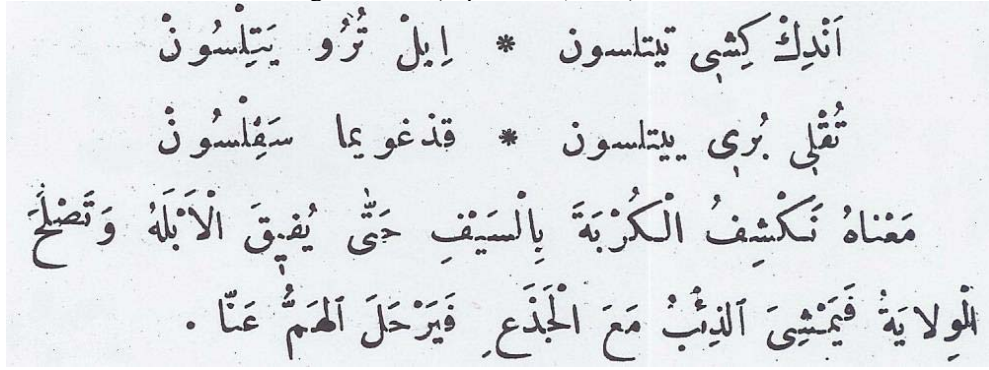 اَنْدِكْ كِشٖى تيتلسون * اِيلْ تُرُو يَتِلْسُونْ
تُقْلٖى بُرٖى ييتلسون * قذغو يما سَفِلْسُونْ
مَعْناهُ نَكْشِفُ الْكُرْبَةَ بِالْسَيْفِ حَتّٰى يُفيقَ الْاَبْلَهُ وَتَصْلَحَ
الْوِلايَةُ فَيَمْشِىَ اَلذِئْبُ مَعَ الْجَذَعِ فَيَرْحَلَ اَلهَمُّ عَنّا .